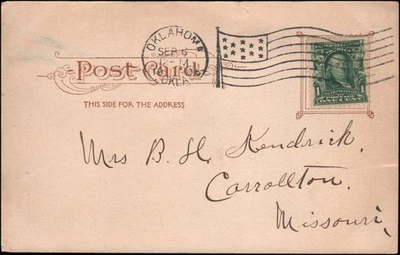 OKLAHOMA
SEP 6
OKLA.
Post Card.
THIS SIDE FOR THE ADDRESS
Mrs B. H. Kendrick.
Carrollton.
Missouri,